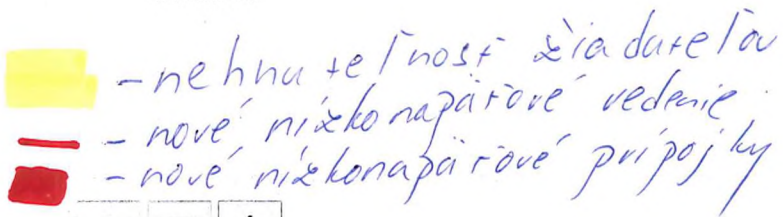 - nehnuteľnosť žiadateľov
- nové nízkonapäťové vedenie
- nové nízkonapäťové prípojky